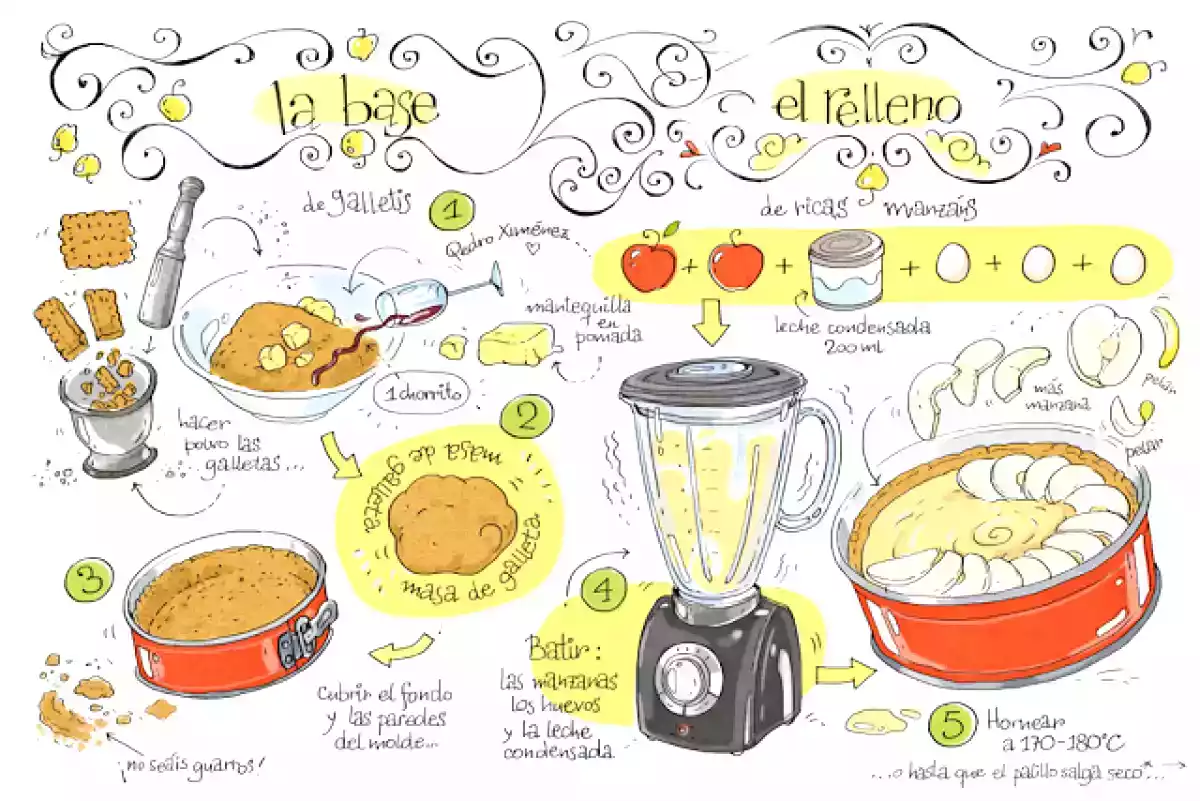 la base
de galletis
1
Pedro Ximénez
mantequilla
en
pomada
1 chorrito
hacer
polvo las
galletas...
2
masa de galleta
masa de galleta
3
Cubrir el fondo
y las paredes
del molde...
¡no seáis guarros!
el relleno
de ricas manzãs
+ + + + +
leche condensada
200 ml
más
manzana
pelar
pelar
4
Batir:
las manzanas
los huevos
y la leche
condensada
5
Hornear
a 170-180°C
...o hasta que el palillo salga seco...